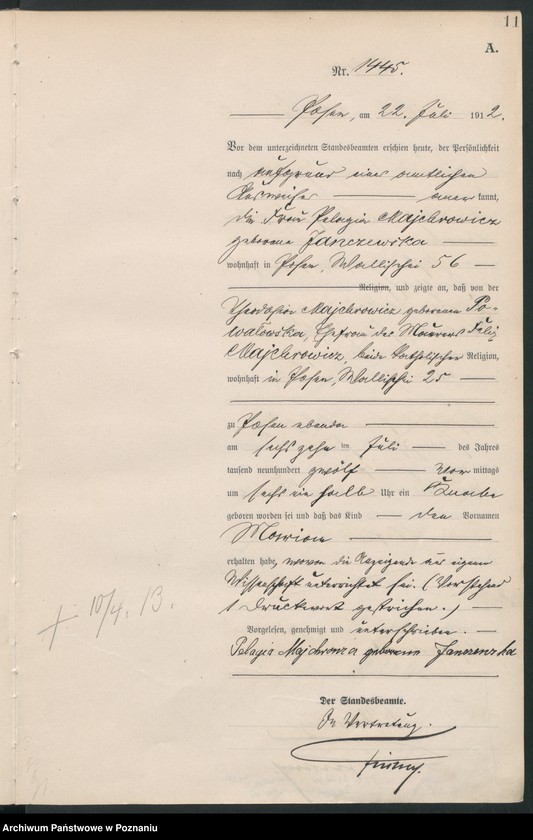 11
A.
Nr. 1445.
Posen, am 22. Juli 1912.
Vor dem unterzeichneten Standesbeamten erschien heute, der Persönlichkeit
nach aufgrund eines amtlichen
Ausweises anerkannt,
die Frau Pelagia Majchrowicz
geborene Janczewska
wohnhaft in Posen, Wallischei 56
Religion, und zeigte an, daß von der
Theodosia Majchrowicz geborenen Po-
walowska, Ehefrau des Maurers Felix
Majchrowicz, beide katholischer Religion,
wohnhaft in Posen, Wallischei 25
zu Posen ebenda
am sechszehnten Juli des Jahres
tausend neunhundert zwölf vormittags
um sechs ein halb Uhr ein Knabe
geboren worden sei und daß das Kind den Vornamen
Marian
erhalten habe, wovon die Anzeigende aus eigener
Wissenschaft unterrichtet sei. (Vorstehend
1 Druckwort gestrichen.)
Vorgelesen, genehmigt und unterschrieben.
Pelagia geborene
Der Standesbeamte.
In Vertretung.
+ 10/4. 13.
Archiwum Państwowe w Poznaniu